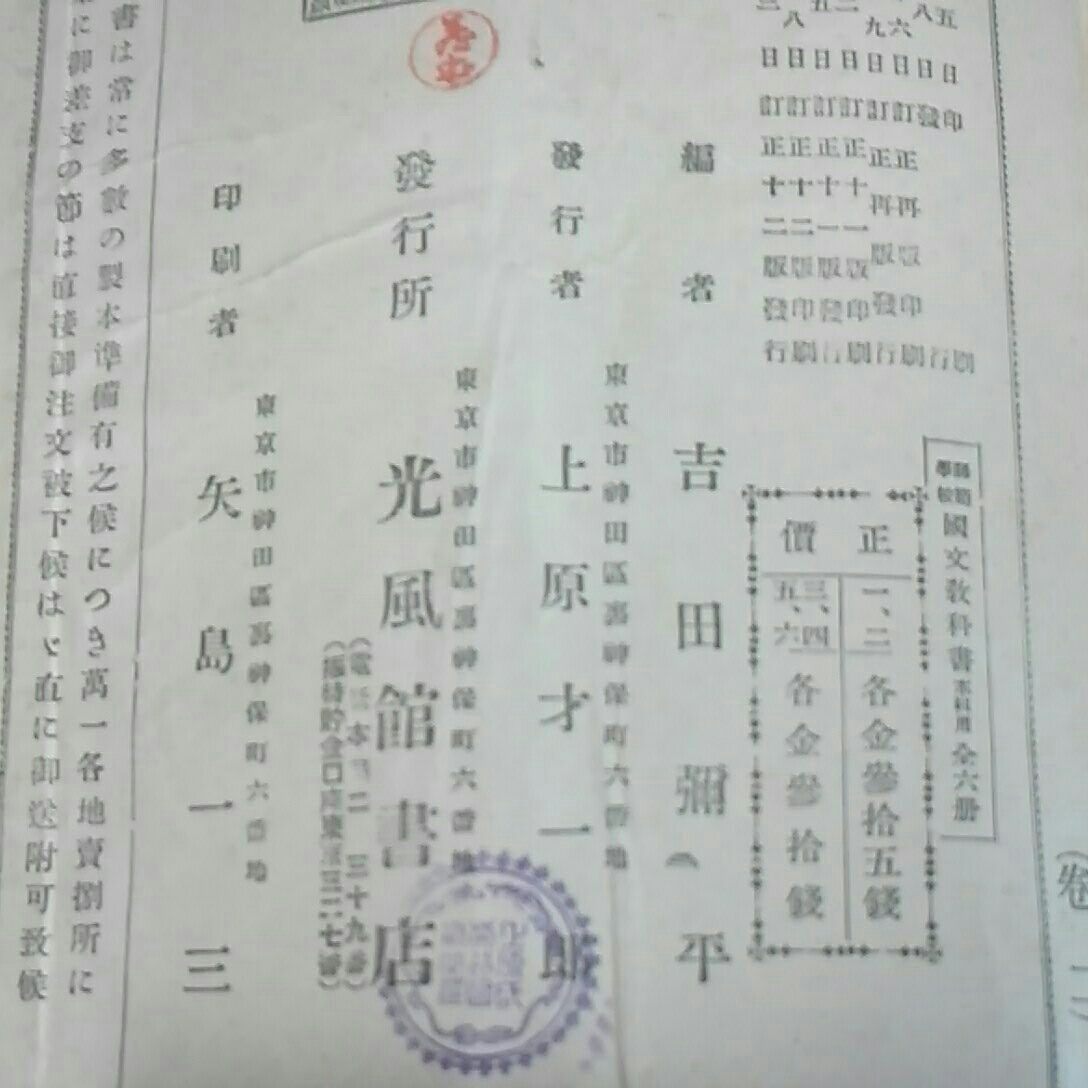 五日印刷
八日發行
六日訂正再版印刷
九日訂正再版發行
二日訂正十一版印刷
五日訂正十一版發行
八日訂正十二版印刷
三日訂正十二版發行
國文教科書
全六册
正價
一、二 各金參拾五錢
三、四
五、六 各金參拾錢
編者 吉田彌平
東京市神田區裏神保町六番地
發行者 上原才一郎
東京市神田區裏神保町六番地
發行所 光風館書店
東京市神田區裏神保町六番地
印刷者 矢島一三
書は常に多數の製本準備有之候につき萬一各地賣捌所に
に御差支の節は直接御注文被下候はゞ直に御送附可致候
(卷